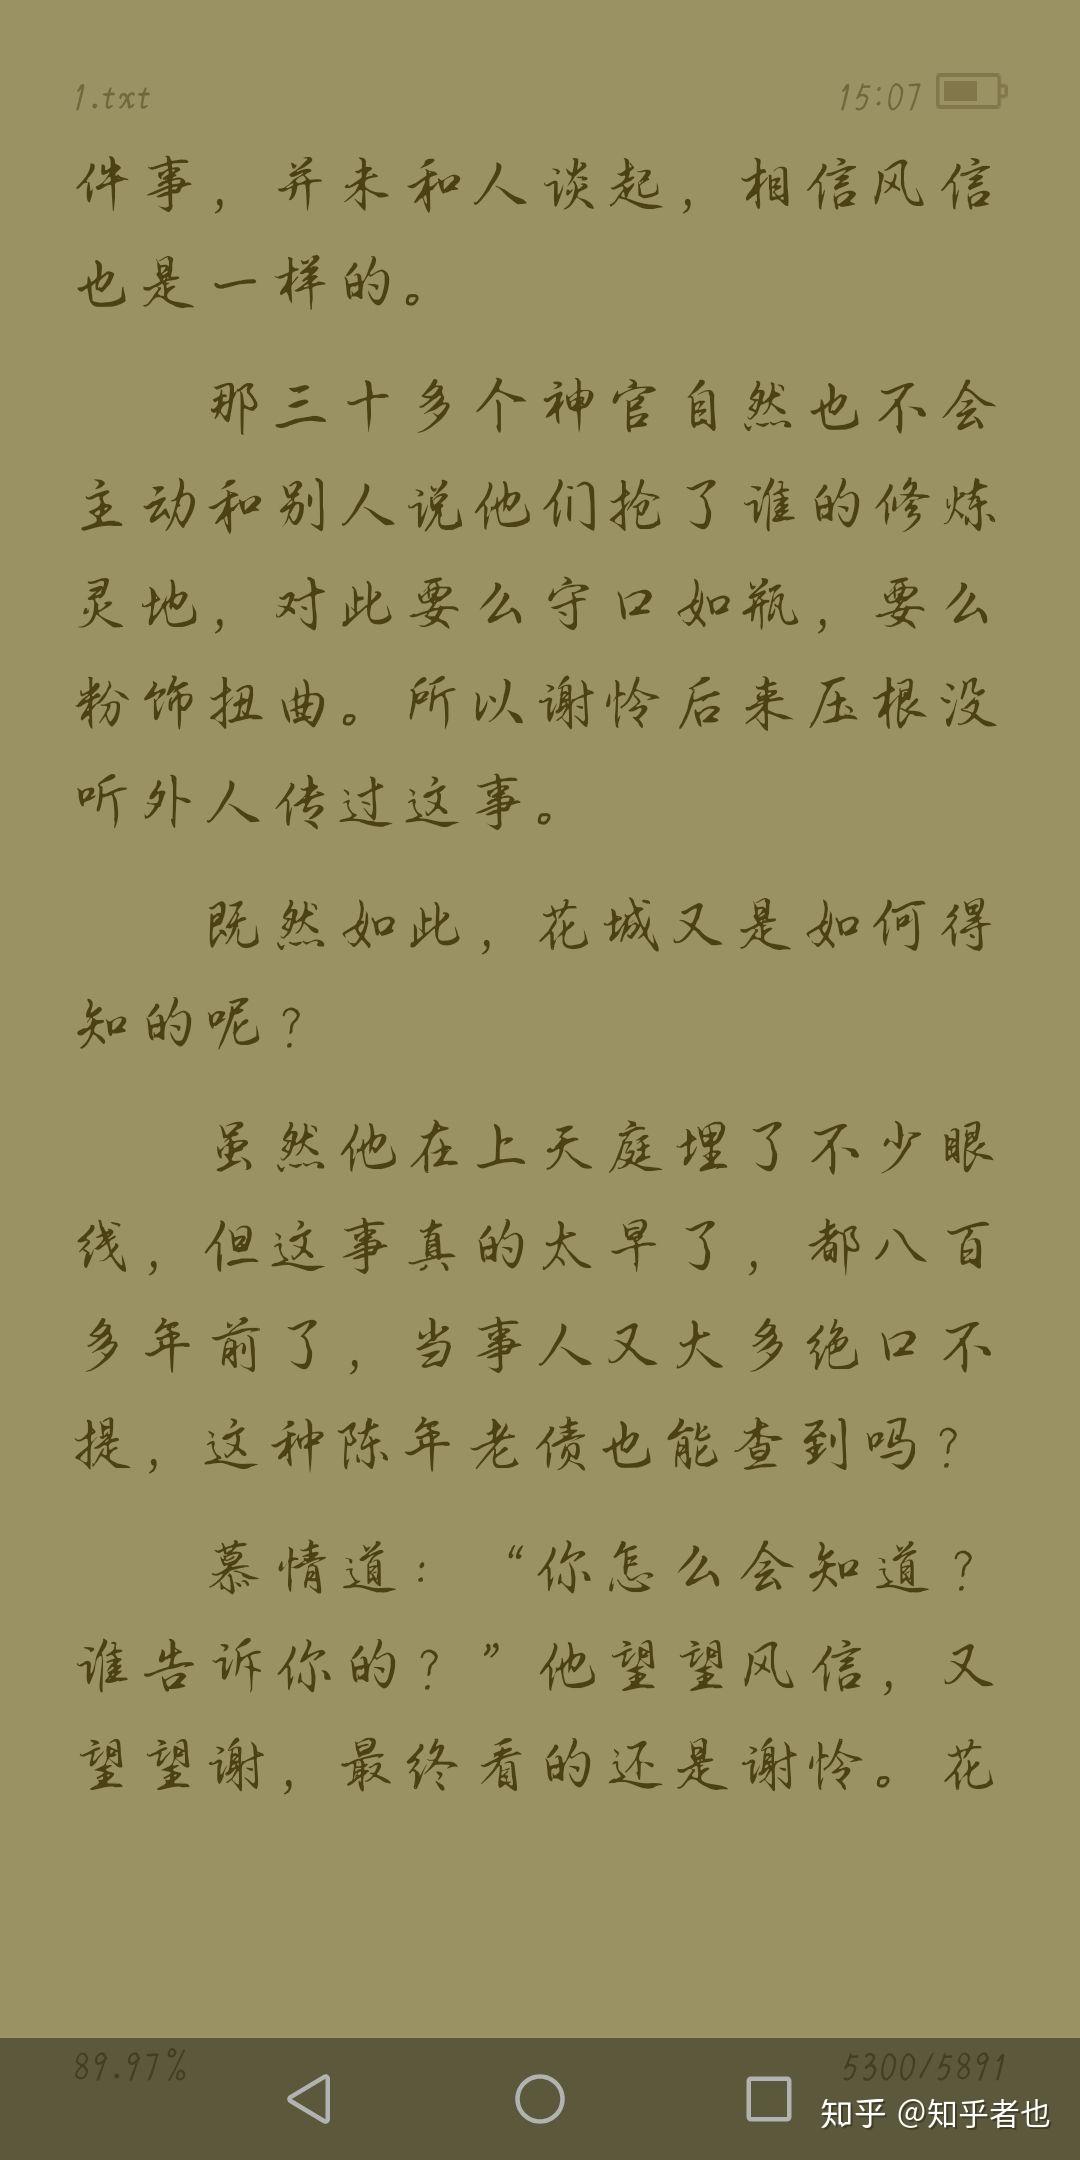 1.txt 15:07
件事，并未和人谈起，相信风信
也是一样的。
那三十多个神官自然也不会
主动和别人说他们抢了谁的修炼
灵地，对此要么守口如瓶，要么
粉饰扭曲。所以谢怜后来压根没
听外人传过这事。
既然如此，花城又是如何得
知的呢？
虽然他在上天庭埋了不少眼
线，但这事真的太早了，都八百
多年前了，当事人又大多绝口不
提，这种陈年老债也能查到吗？
慕情道：“你怎么会知道？
谁告诉你的？”他望望风信，又
望望谢，最终看的还是谢怜。花
89.97% 5300/5891
知乎 @知乎者也